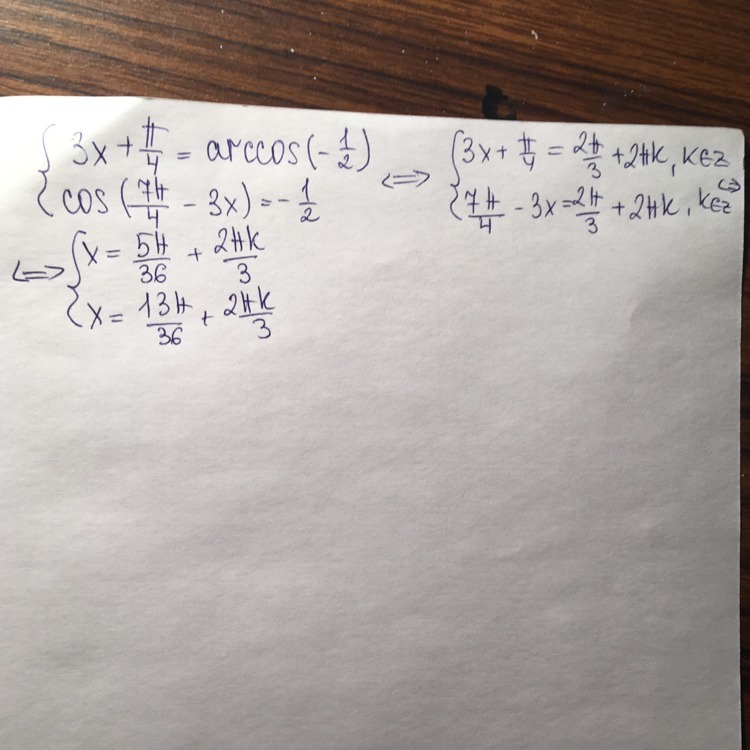 { 3x + π/4 = arccos(-1/2)
cos(7π/4 - 3x) = -1/2
⇔
{ 3x + π/4 = 2π/3 + 2πk, k∈z
7π/4 - 3x = 2π/3 + 2πk, k∈z
⇔
⇔ { x = 5π/36 + 2πk/3
x = 13π/36 + 2πk/3